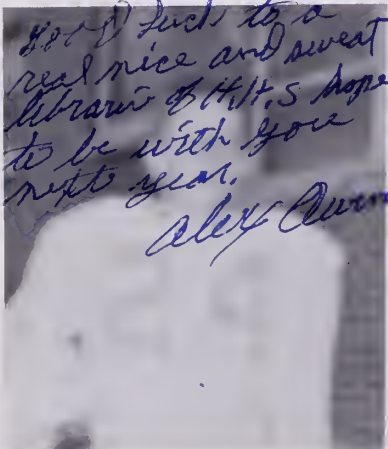 Good Luck to a
real nice and sweat
librarin of H.H.S hope
to be with you
next year.
Alex